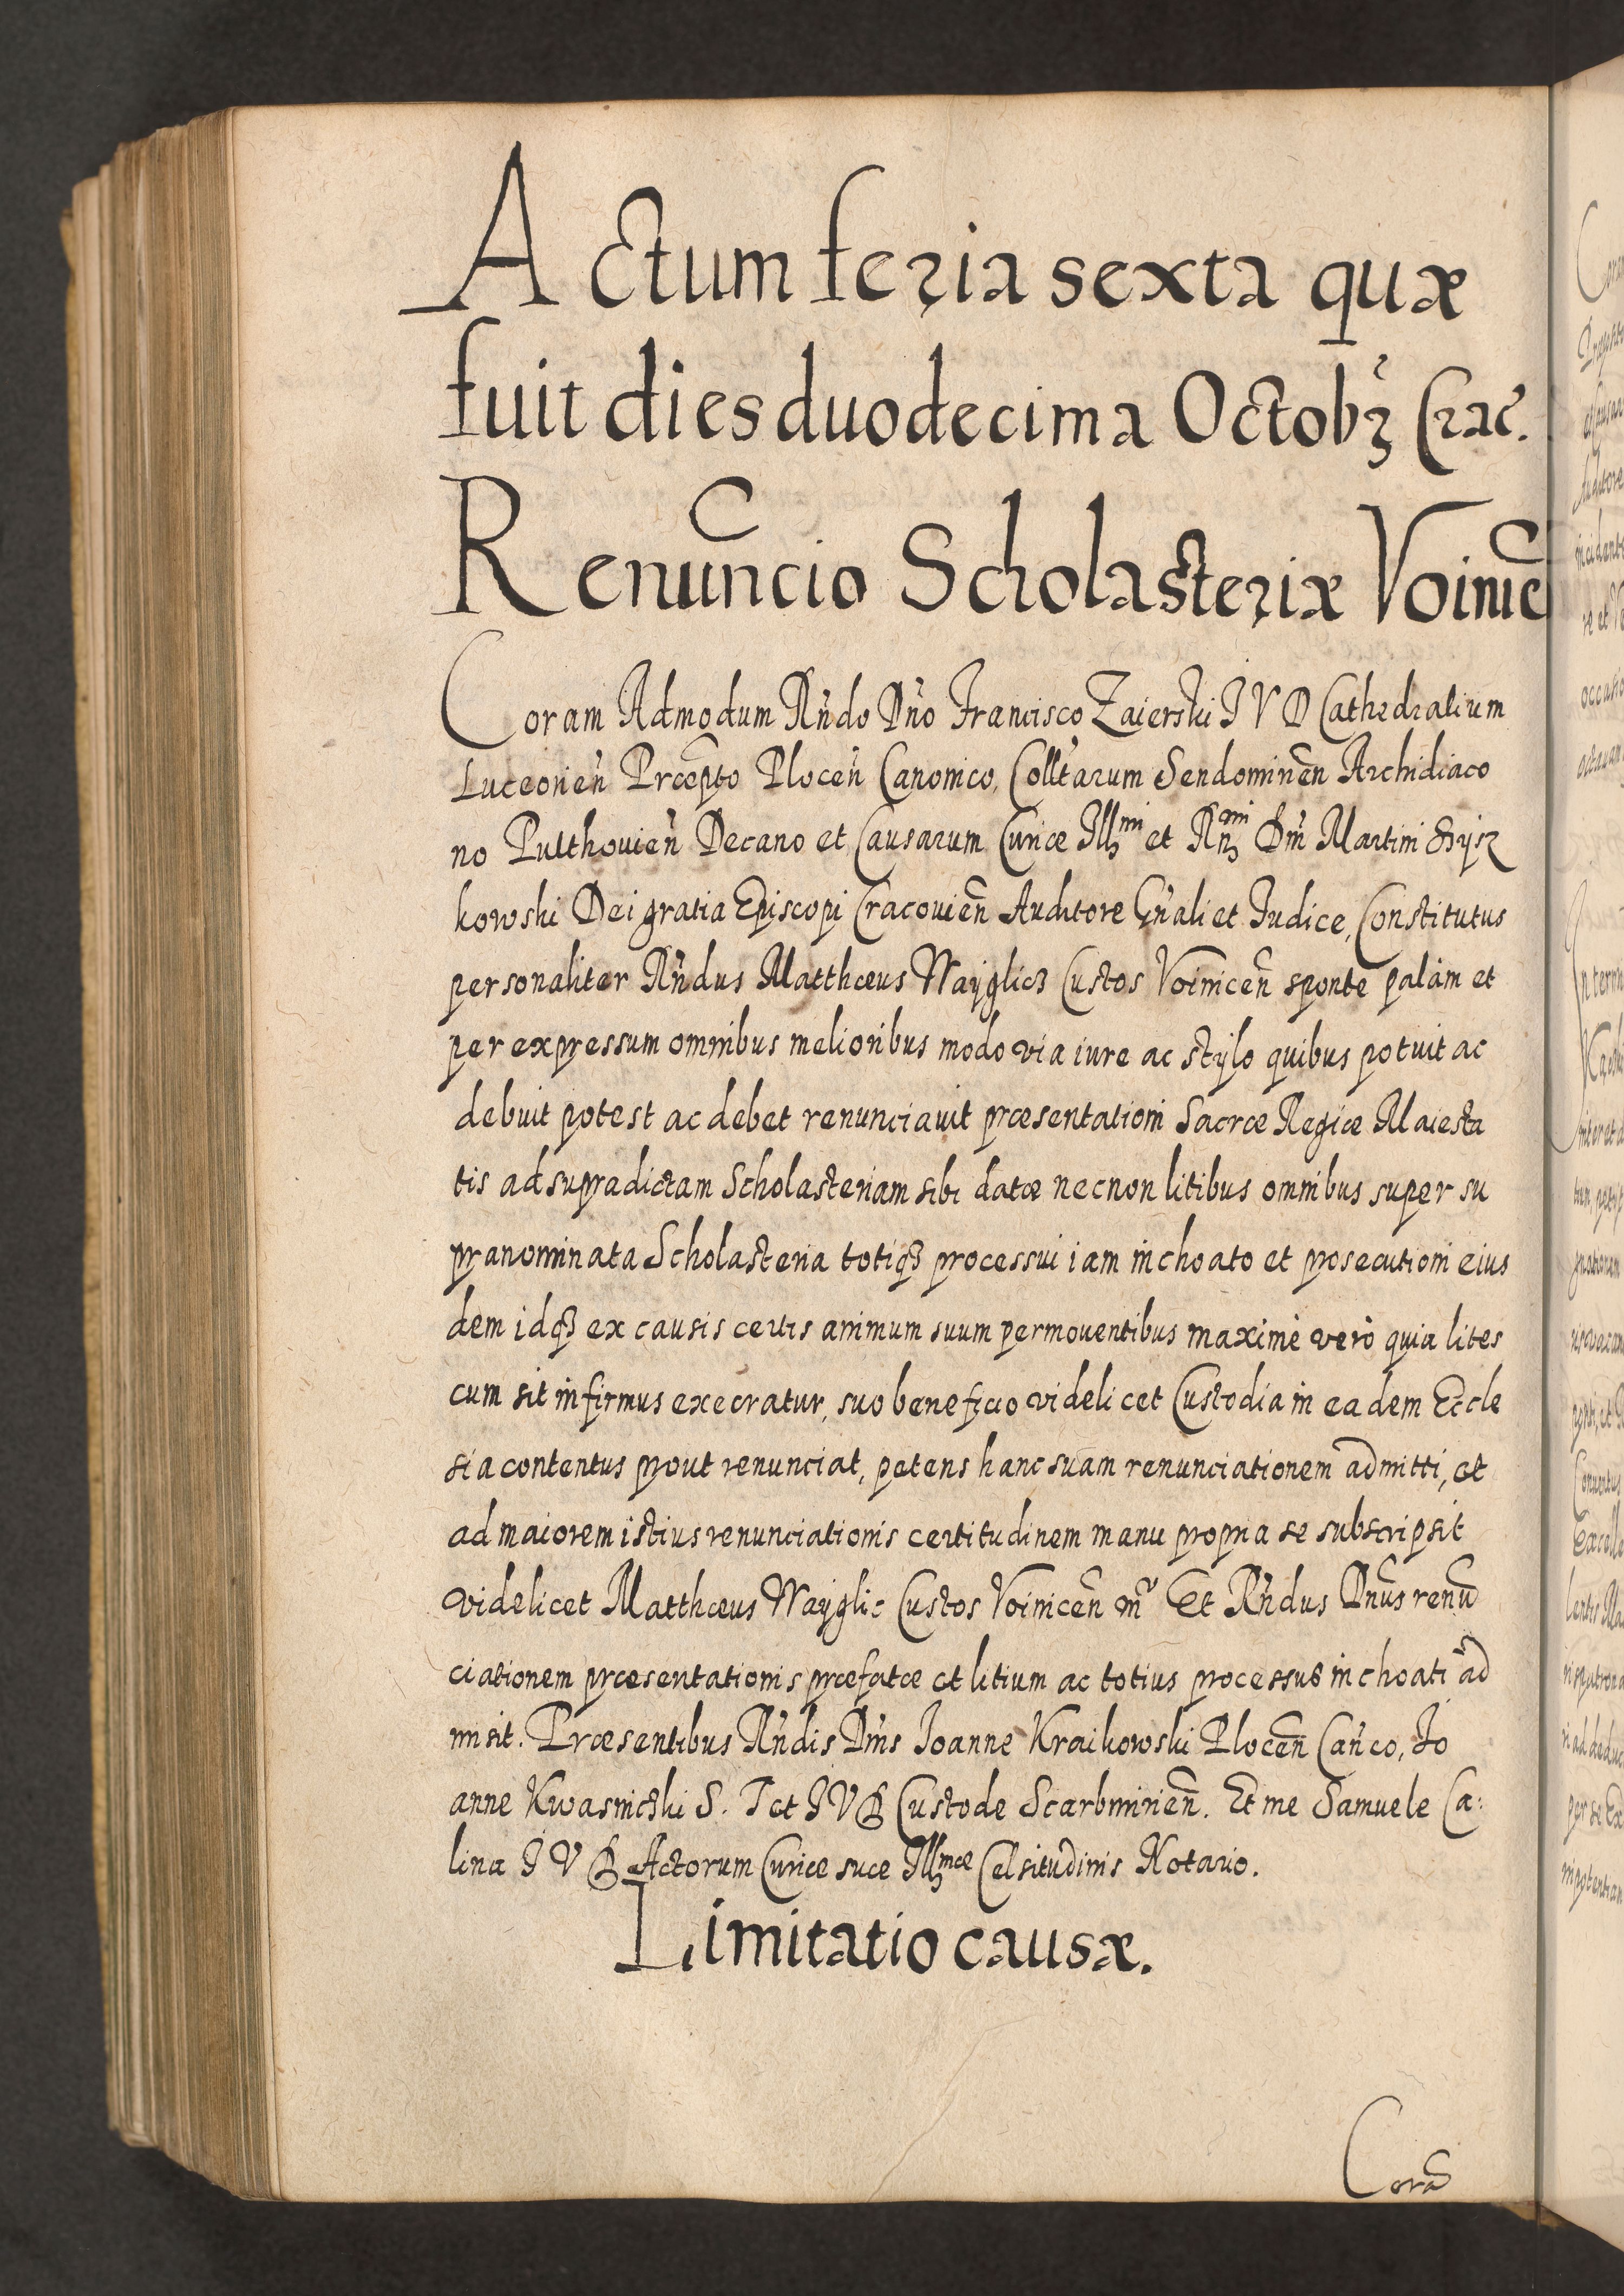 Actum feria sexta quæ
fuit dies duodecima Octobꝫ Crac.
Renũncio Scholasteriæ Voinic̃
Coram Admodum Rñdo Dño Francisco Zaierski I V D Cathedralium
Luceorien̄ Præp̃to Plocen̄ Canonico, Coll̃tarum Sendomiriēn Archidiaco
no Pulthouien̄ Decano et Causarum Curiæ Illꝫmi et Rñꝫmi Dñi Martini Szysz
kowski Dei gratia Episcopi Cracouien̄ Auditore Gñali et Iudice, Constitutus
personaliter Rñdus Matthæus Wayglicz Custos Voinicen̄ sponte palàm et
per expressum omnibus melioribus modo via iure ac stylo quibus potuit ac
debuit potest ac debet renunciauit præsentationi Sacræ Regiæ Maiesta
tis ad supradictam Scholasteriam sibi datæ necnon litibus omnibus super su
pranominata Scholasteria totiqꝫ processui iam inchoato et prosecutioni eius
dem idqꝫ ex causis certis animum suum permouentibus maximè verò quia lites
cum sit infirmus execratur, suo beneficio videlicet Custodia in eadem Eccle
sia contentus prout renunciat, petens hanc suam renunciationem admitti, et
ad maiorem istius renunciationis certitudinem manu propria se subscripsit
videlicet Matthæus Wayglic Custos Voinicen̄ m̃ Et Rñdus Dñus renũ
ciationem præsentationis præfatæ et litium ac totius processus inchoati ad
misit. Præsentibus Rñdis Dñis Ioanne Kraikowski Plocen̄ Cañco, Io
anne Kwasnicski S. T et I V B Custode Scarbimirien̄. Et me Samuele Ca:
lina I V B Actorum Curiæ suæ Illꝫmæ Celsitudinis Notario.
Limitatio causæ.
Corã